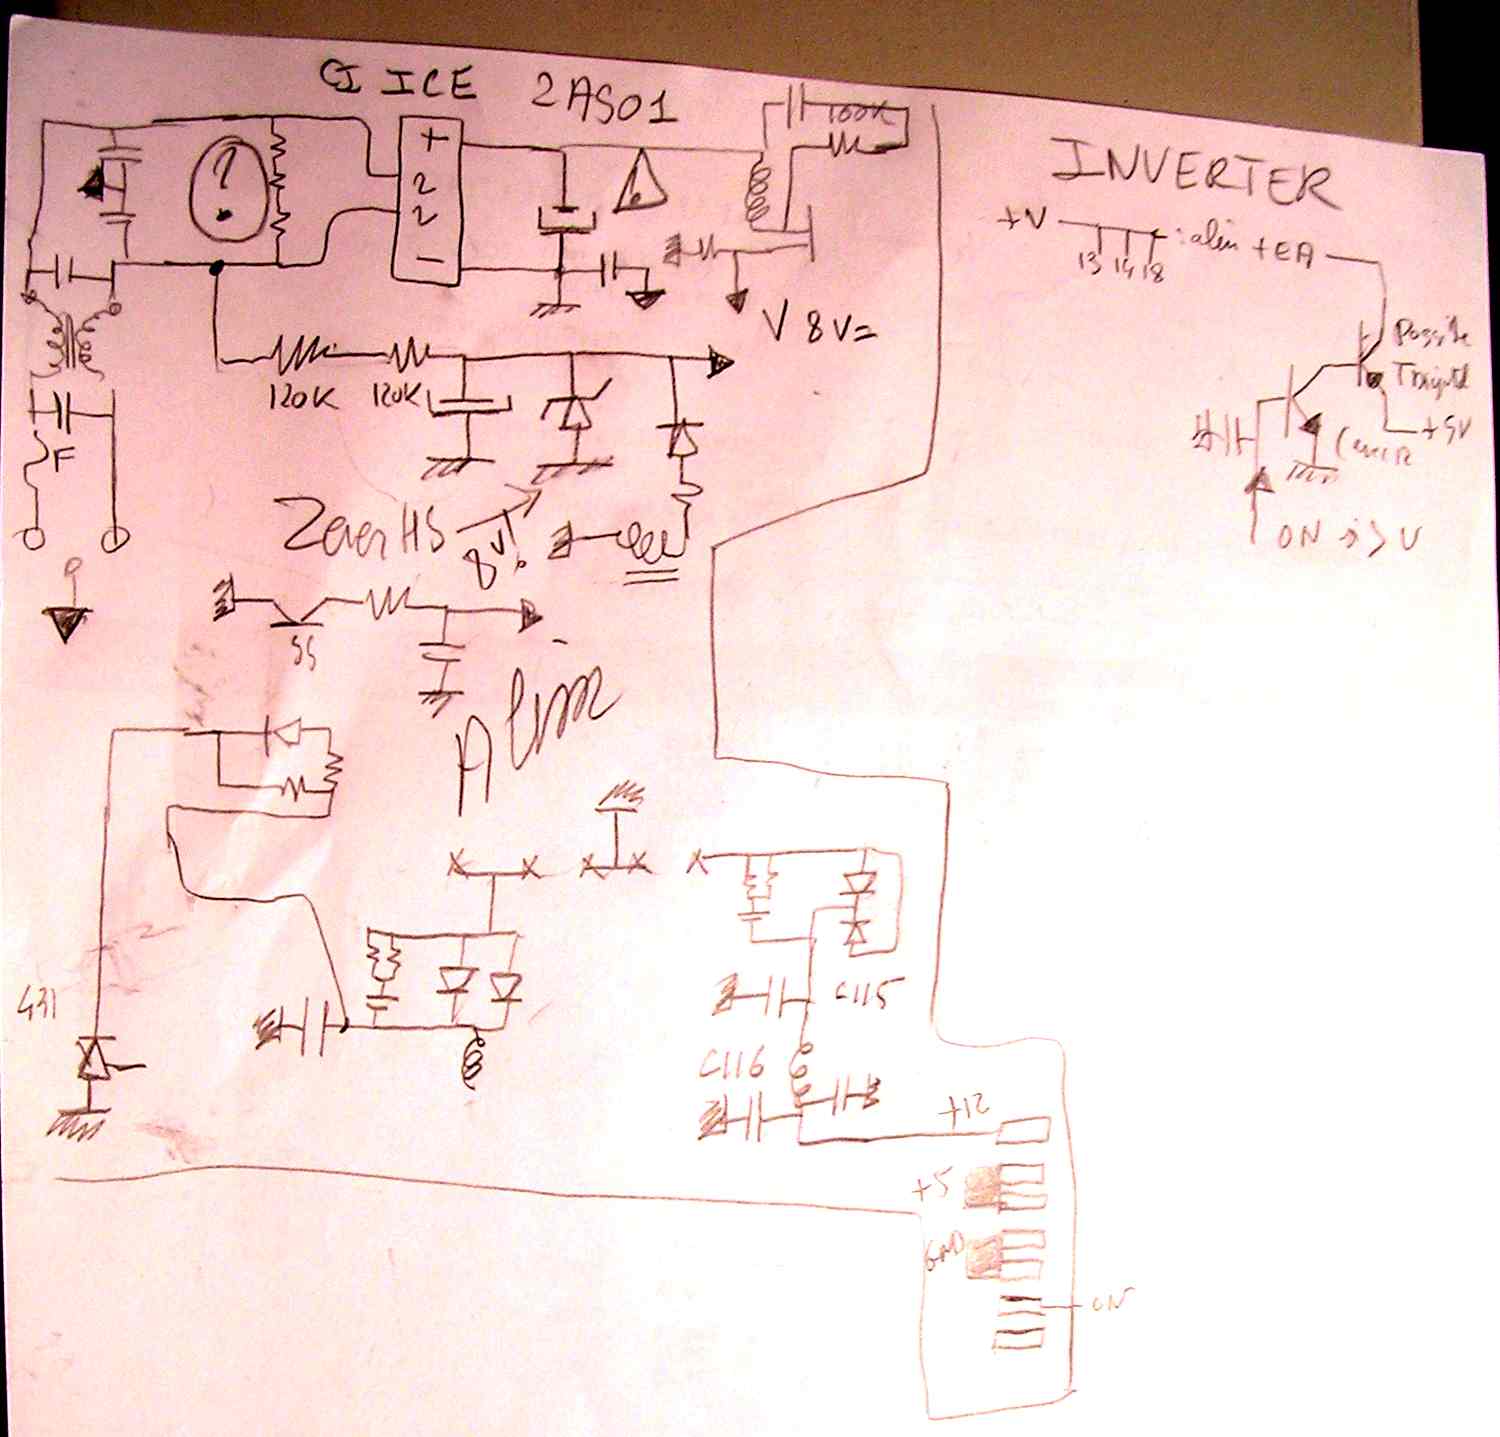 CI ICE 2AS01
100K
+
2
2
-
?
!
V 8V=
120K 120K
F
Zener HS
8V!
SS
Alim
431
C115
C116
+12
+5
GND
ON
INVERTER
+V
13 14 18
: alim +EA
+5V
ON → > V